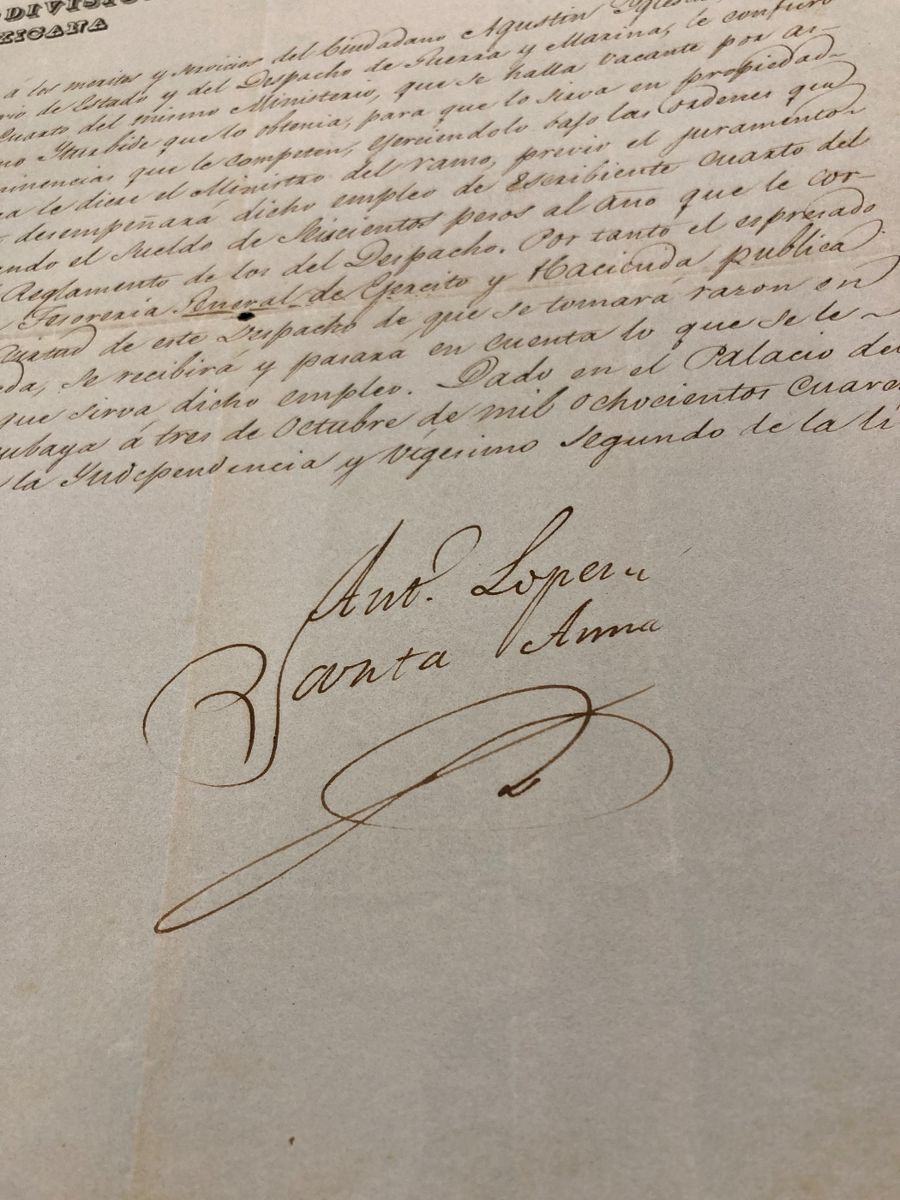 DIVISIO
XICANA
á los meritos y servicios del Ciudadano Agustin Yglesia
rio de Estado y del Despacho de Guerra y Marina, le confiero
Cuarto del mismo Ministerio, que se halla vacante por as-
no Yturbide que lo obtenia, para que lo sirva en propiedad
minencias que le competen, ejerciendolo bajo las ordenes que
le diere el Ministro del ramo, previo el juramento
desempeñará dicho empleo de Escribiente cuarto del
ndo el sueldo de Seiscientos pesos al año que le cor-
Reglamento de los del Despacho. Por tanto el espresado
Tesoreria General de Ejército y Hacienda publica
virtud de este Despacho de que se tomará razon en
da, se recibirá y pasará en cuenta lo que se le
que sirva dicho empleo. Dado en el Palacio de
ubaya á tres de Octubre de mil ochocientos cuare
la Yndependencia y vigesimo segundo de la li
Ant.º Lopez
Santa Anna